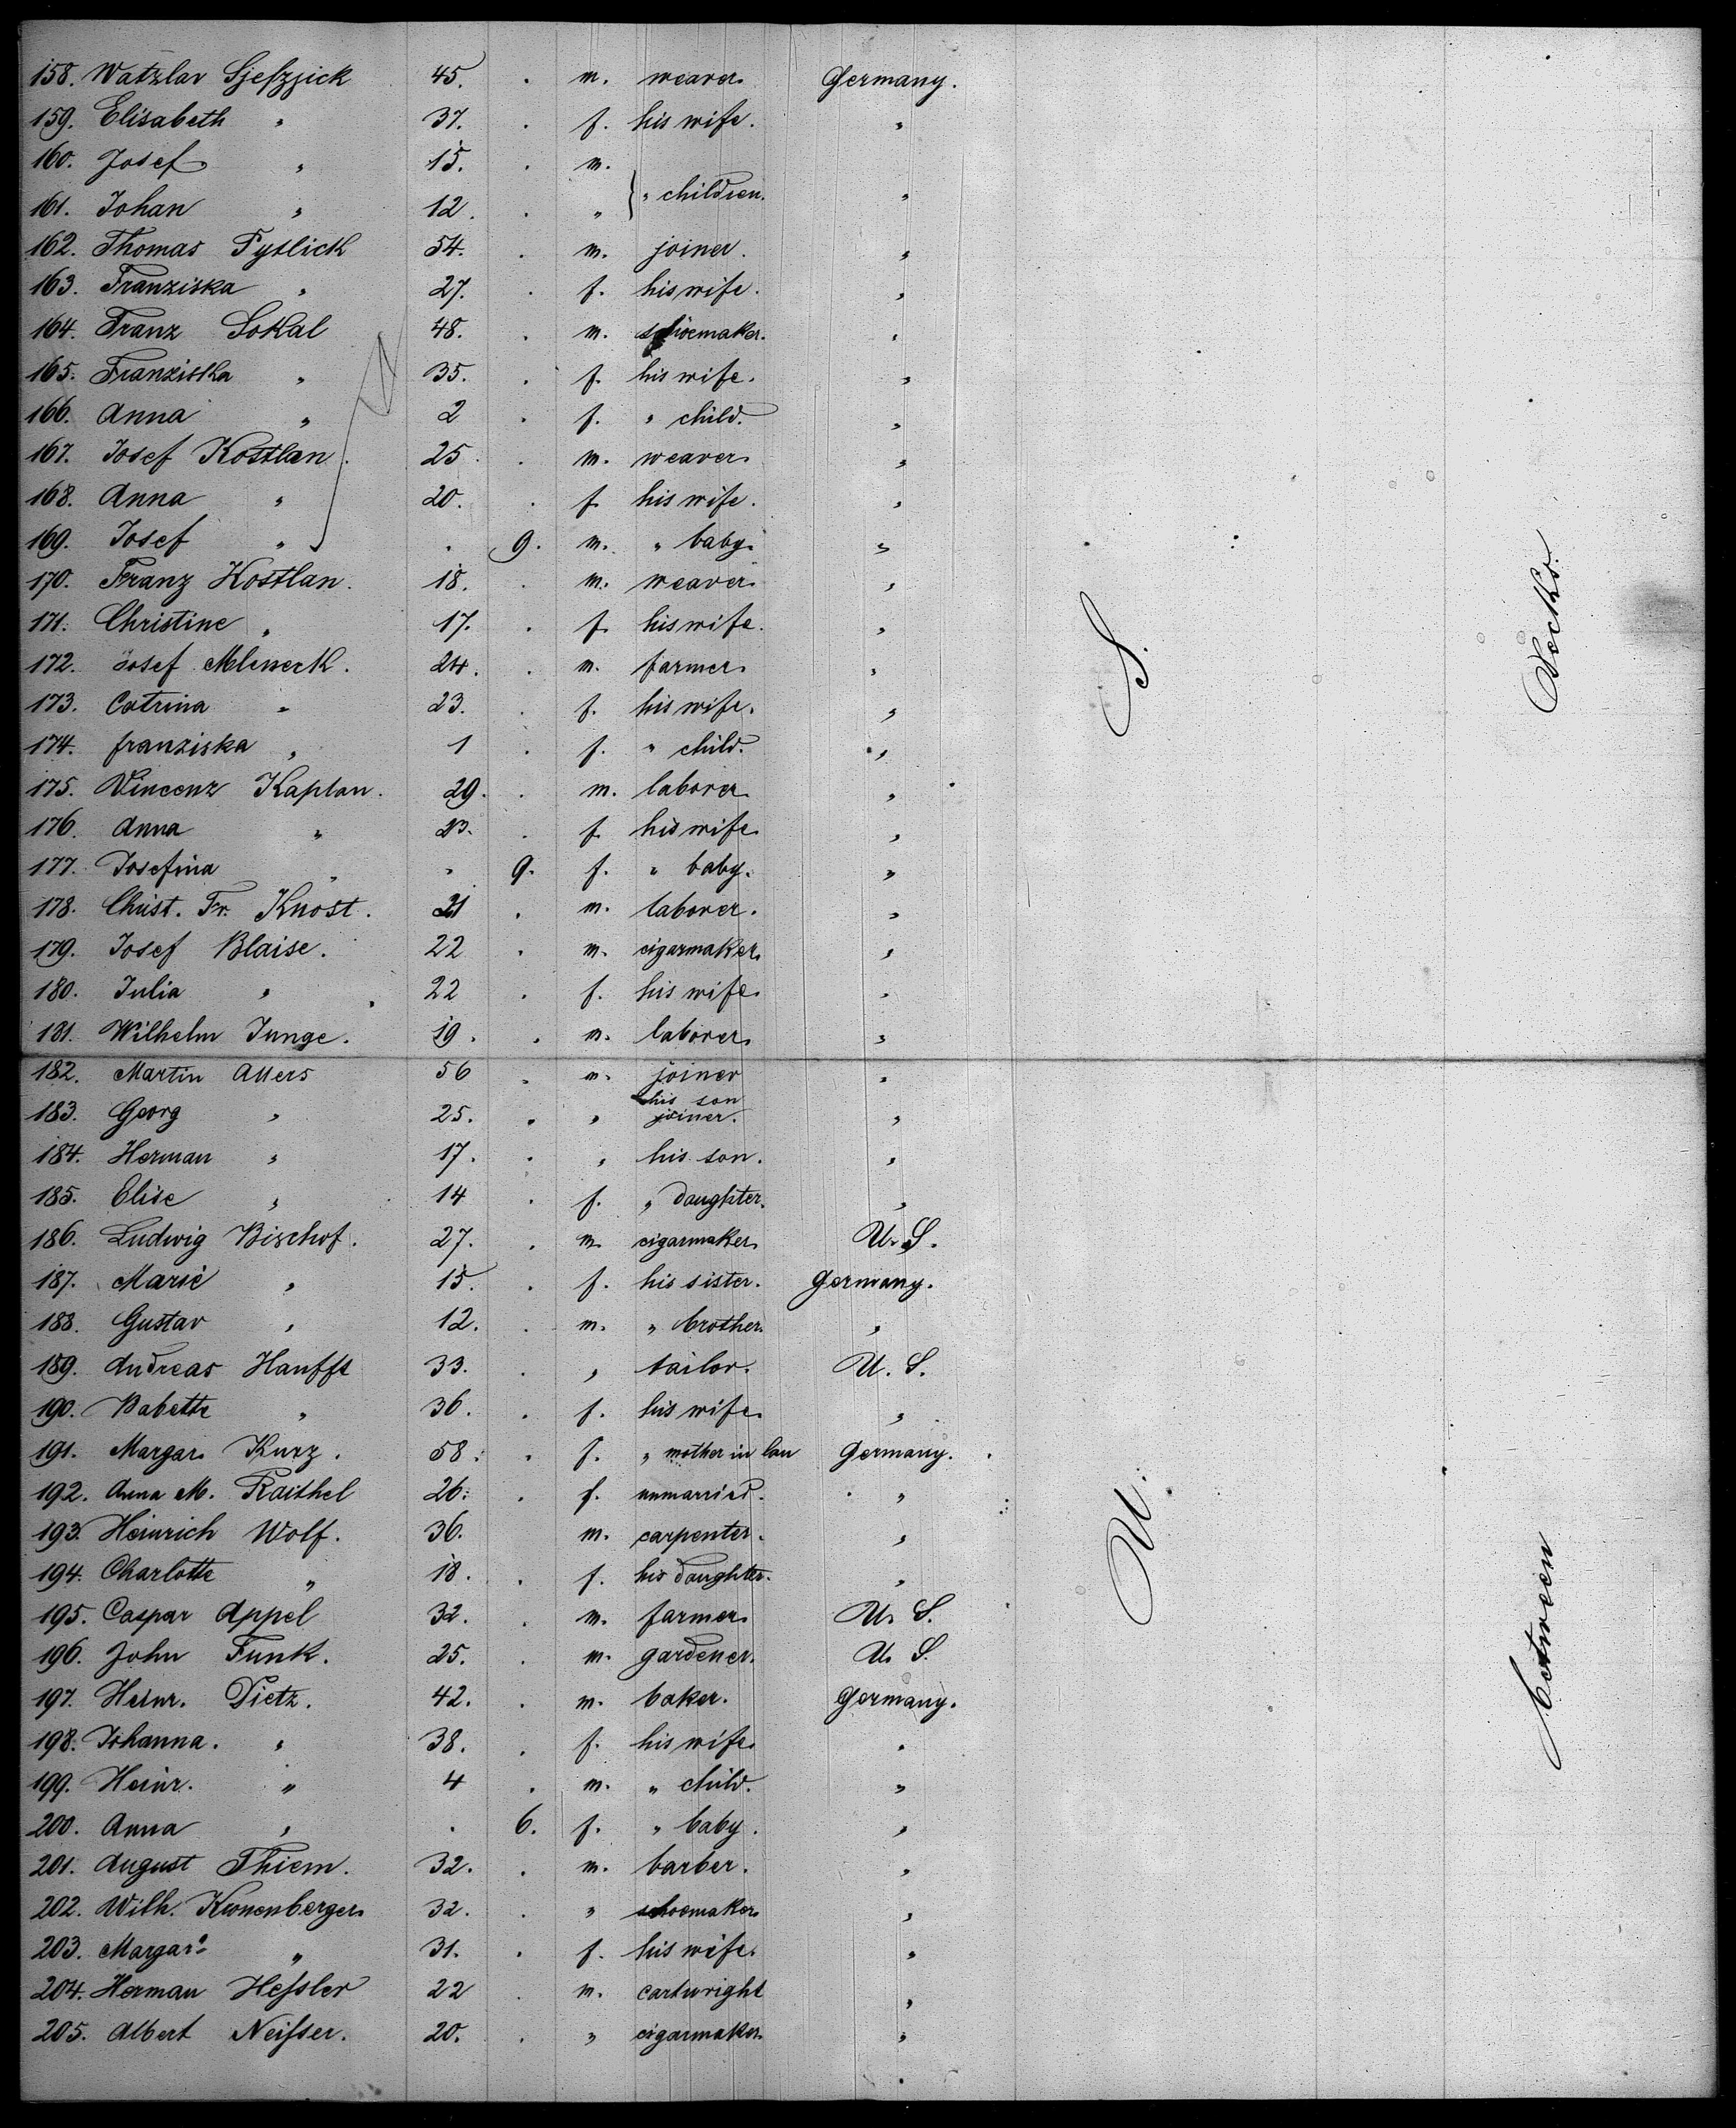 158. Watzlav Sjeſzjick 45. . m. weaver Germany.
159. Elisabeth " 37. . f. his wife. "
160. Josef " 15. . m.
161. Johan " 12. . " } " children. "
162. Thomas Fyslick 54. . m. joiner. "
163. Franziska " 27. . f. his wife. "
164. Franz Sokal 48. . m. shoemaker. "
165. Franziska " 35. . f. his wife. "
166. Anna " 2 . f. " child. "
167. Josef Kostlan. 25 . m. weaver "
168. Anna " 20. . f. his wife. "
169. Josef " . 9. m. " baby. "
170. Franz Kostlan. 18. . m. weaver "
171. Christine " 17. . f. his wife. "
172. Josef 24. . m. farmer "
173. Catrina " 23. . f. his wife. "
174. franziska " 1 . f. " child. "
175. Vincenz Kaplan. 29. . m. laborer "
176. Anna " 23. . f. his wife "
177. Josefina " " 9. f. " baby. "
178. Christ. Fr. Knost. 21 . m. laborer. "
179. Josef Blaise. 22 . m. cigarmaker "
180. Julia " 22 . f. his wife "
181. Wilhelm Junge. 19. . m. laborer "
182. Martin Allers 56 . m. joiner "
183. Georg " 25. . " his son joiner. "
184. Herman " 17. . " his son. "
185. Elise " 14 . f. " daughter. "
186. Ludwig Bischof. 27. . m. cigarmaker U. S.
187. Marie " 15. . f. his sister. Germany.
188. Gustav " 12. . m. " brother "
189. Andreas Haufft 33. . " tailor. U. S.
190. Babette " 36. . f. his wife "
191. Margar. Kurz. 58. . f. " mother in law Germany.
192. Anna M. Raithel 26. . f. unmarried. "
193. Heinrich Wolf. 36. m. carpenter. "
194. Charlotte " 18. . f. his daughter. "
195. Caspar Appel 32. . m. farmer U. S.
196. John Funk. 25. . m. gardener. U. S.
197. Heinr. Dietz. 42. . m. baker. Germany.
198. Johanna. " 38. . f. his wife "
199. Heinr. " 4 . m. " child. "
200. Anna " . 6. f. " baby. "
201. August Thiem. 32. . m. barber. "
202. Wilh. Kronenberger 32. . " shoemaker "
203. Margar. " 31. . f. his wife. "
204. Herman Heſsler 22 . m. cartwright "
205. Albert Neiſser. 20. . " cigarmaker "
U. S.
between Decks.